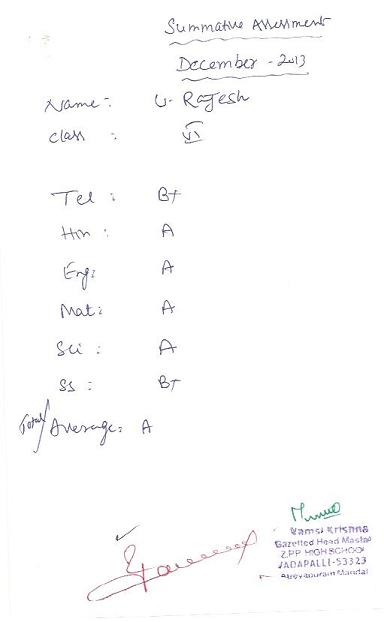 Summative Assessment
December - 2013
Name:- U. Rajesh
class : VI
Tel : B+
Hin : A
Eng: A
Mat: A
Sci : A
SS : B+
Total/Average: A
Vamsi Krishna
Gazetted Head Master
Z.PP HIGH SCHOOL
VADAPALLI-53323
Atreyapuram Mandal